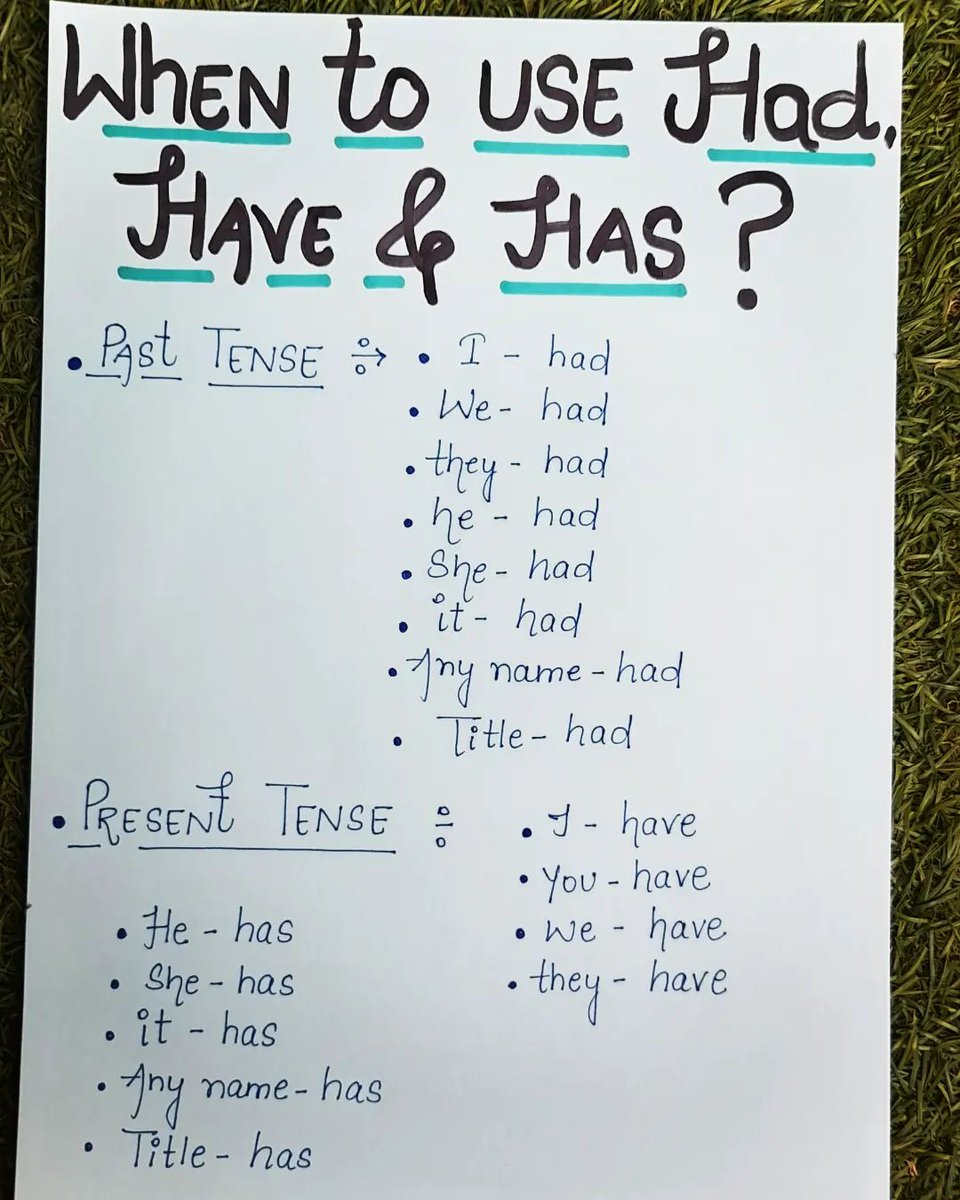 WhEN to USE Had,
HAVE & HAS ?
• PAst TENSE ÷> • I - had
• We - had
• they - had
• he - had
• She - had
• it - had
• Any name - had
• Title - had
• PRESENt TENSE ÷
• I - have
• You - have
• We - have
• they - have
• He - has
• She - has
• it - has
• Any name - has
• Title - has